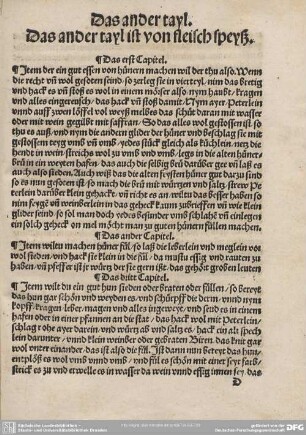 Das ander tayl.
Das ander tayl ist von fleisch speyß.
¶ Das erst Capitel.
¶ Item der ein gut essen von hünern machen wil der thu also. Wenn
die recht vñ wol gesoten seind, so zerleg sie in vierteyl, nim das breitig
vnd hack es vñ stoß es wol in einem mörser also, nym haubt, kragen
vnd alles eingereusch, das hack vñ stoß damit. Nym ayer Peterlein
vnnd auff zwen löffel vol weyß melbes das schüt daran mit wasser
oder mit wein gegilbt mit saffran. So das alles wol gestossen ist. so
thu es auß, vnd nym die andern glider der hüner vnd beschlag sie mit
gestossem teyg vmb vñ vmb, yedes stück gleich als küchlein, netz die
hendt in wein streichs wol zu vmb vnd vmb, legs in die alten hüner
brü in ein weyten hafen, das auch die selbig brü darüber gee vñ laß es
auch also sieden. Auch wiß das die alten feysten hüner gut darzu sind
so es nun gesoten ist, so mach die brü mit würtzen vnd saltz, strew Pe
terlein darüber klein gehackt,
nim feyge vñ weinberlein in das geheck
glider seind, so sol man doch yedes besunder vmb schlahē vñ einlegen
ein solch geheck on mel möcht man zu guten hünern füllen machen.
¶ Das ander Capitel.
¶ Item wiltu machen hüner fül, so laß die leberlein vnd meglein vor
wol sieden, vnd hack sie klein in die fül, da mustu essig vnd rauten zu
haben, vñ pfeffer ist jr würtz der sie gern ist. das gehört großen leuten
¶ Das dritt Capitel.
¶ Item wilt du ein gut hun sieden oder braten oder füllen, so bereyt
das hun gar schön vnd weyden es, vnd schürpff die derm, vnnd nym
kopff, kragen, leber, magen vnd alles ingeweyd, vnd seud es in einem
hafen oder in einer pfannen an die stat, das hack wol mit Peterlein,
schlag rohe ayer darein, vnd würtz ab vnd saltz es, hack ein als speck
lein darunter, vnnd klein weinber oder gebraten Biren. das knit gar
wol vnter einander, das ist also die fül. Ist dann nun bereyt das hun,
entplöß es wol vmb vnnd vmb, vnd fül es schön mit einer sey farb,
strick es zu vnd erwelle es in wasser da wein vnnd essig innen sey. das
D